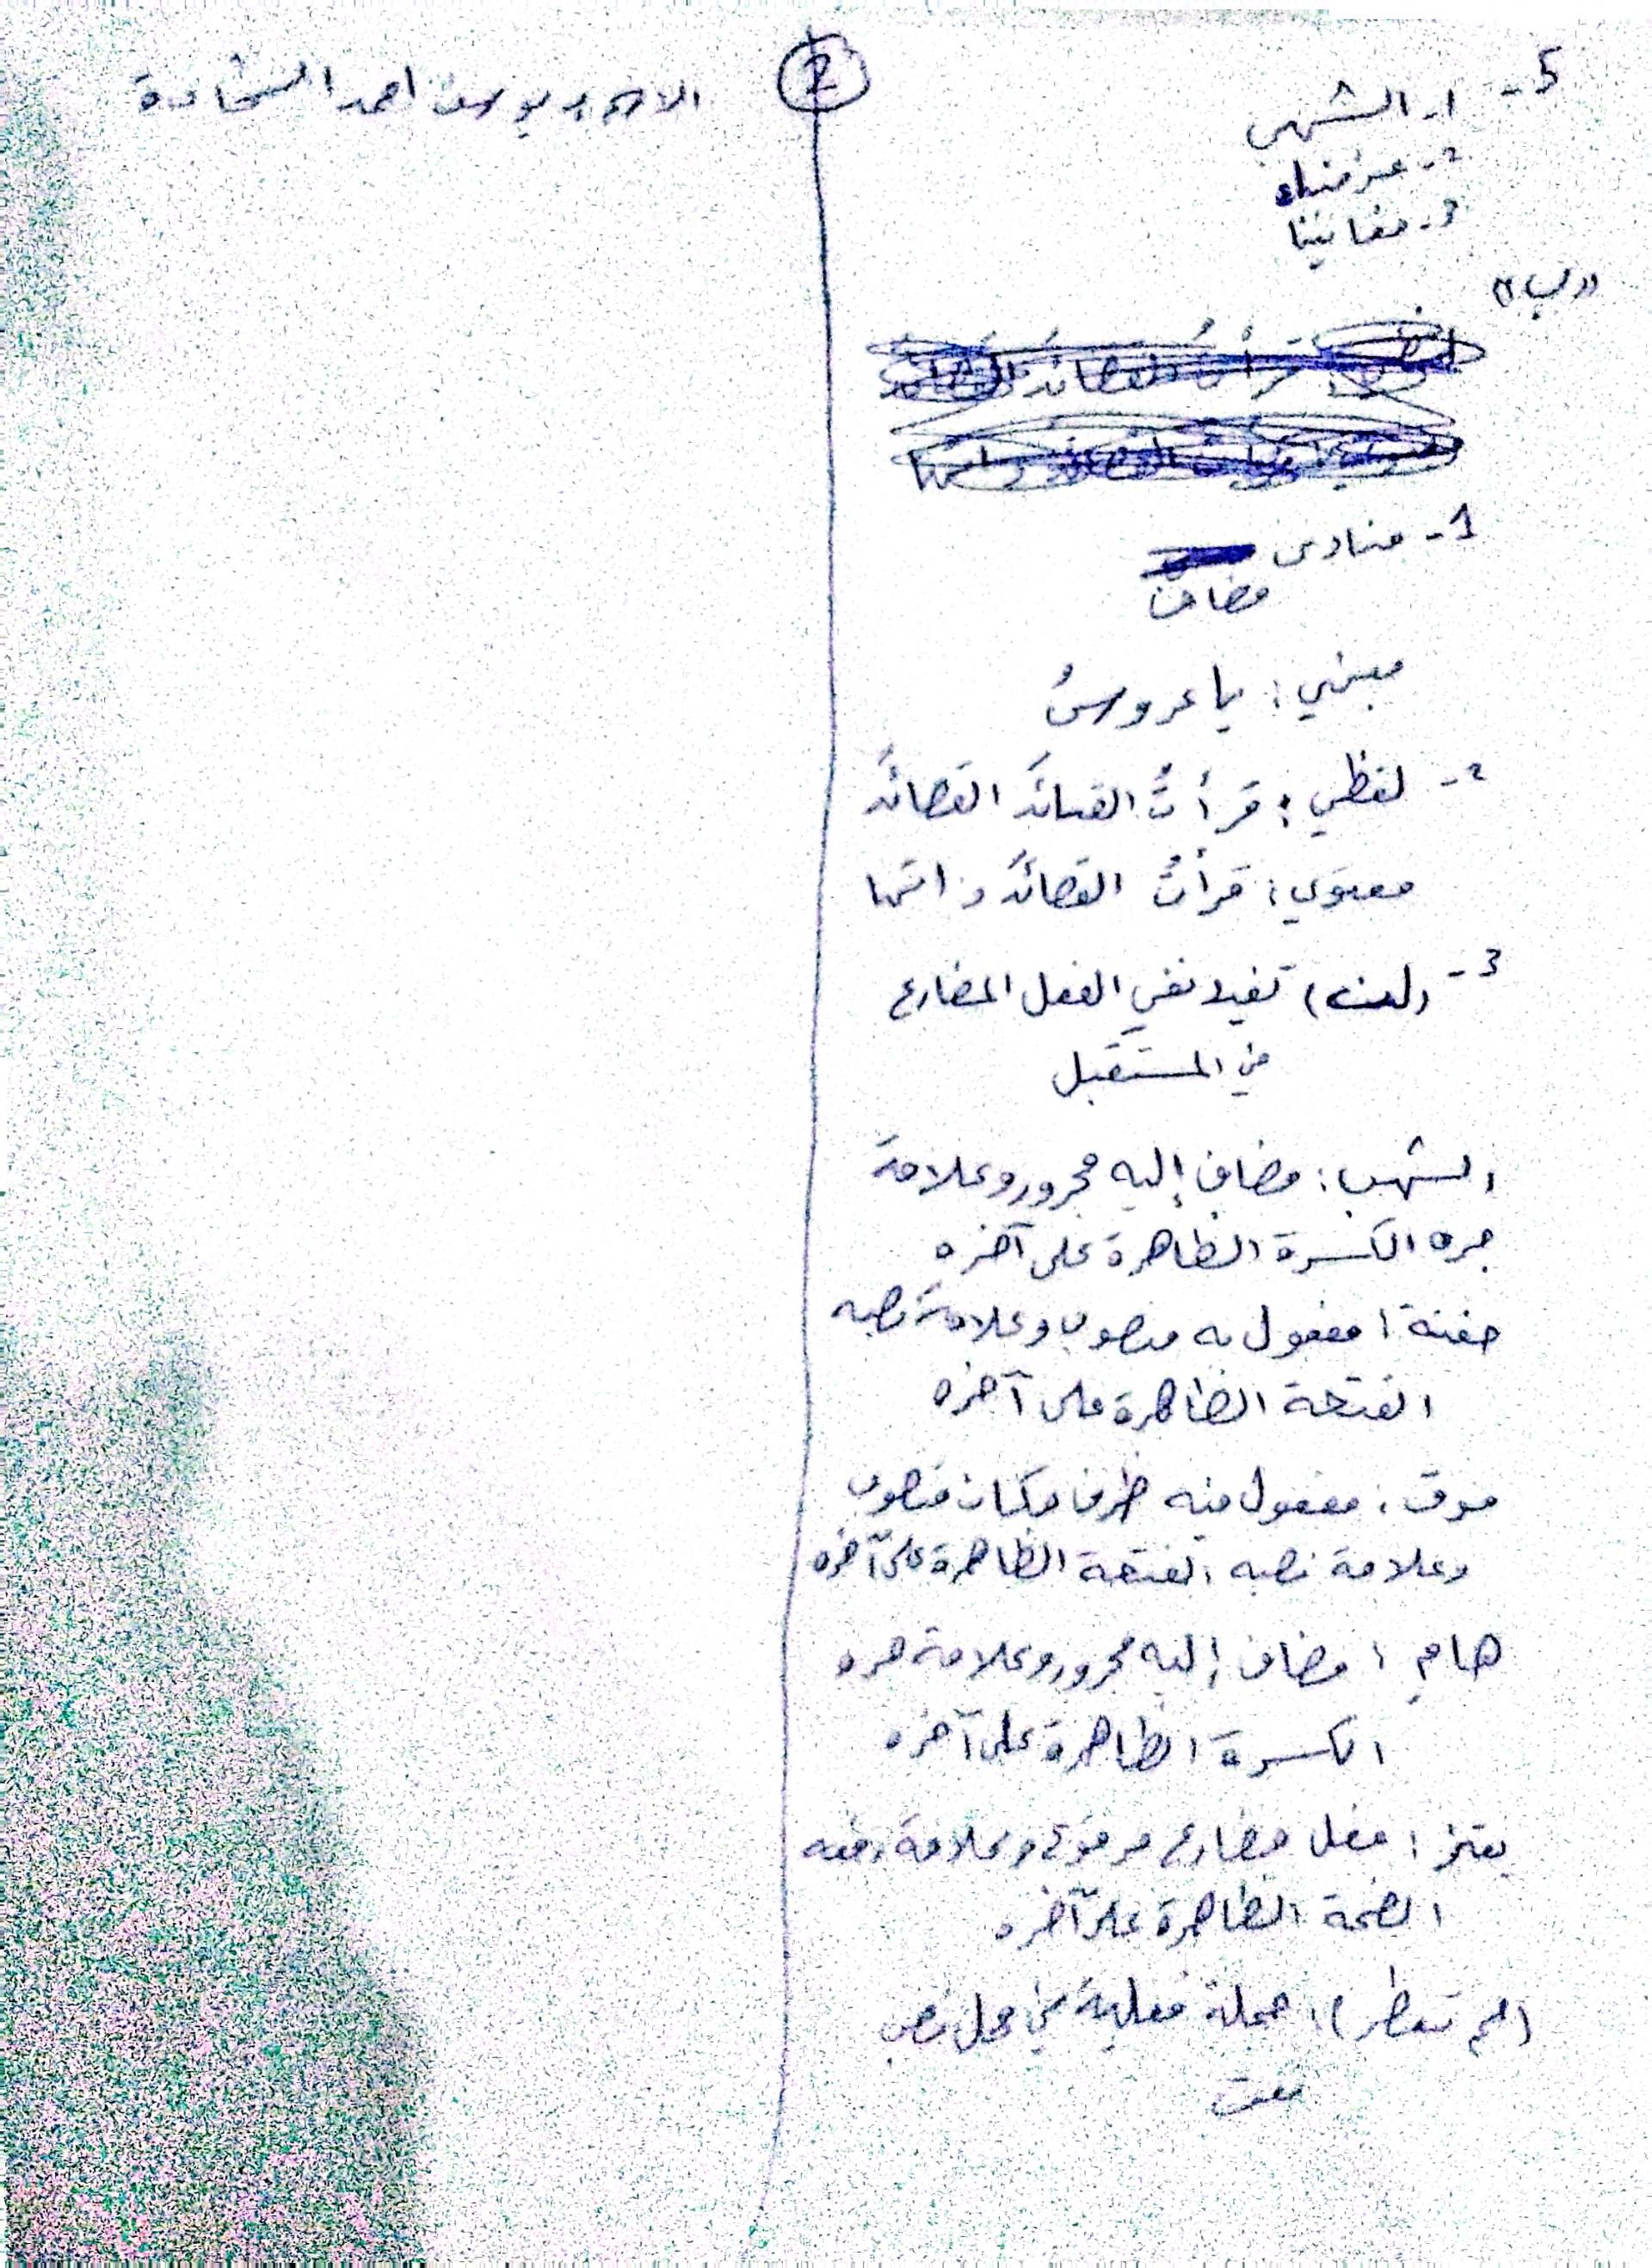 2
الاسم: يوسف احمد الشحادة
5-
1- الشهب
2- عزفناه
3- مغانينا
«ب»
1- منادى
مضاف
مبني: يا عروسُ
2- لفظي: قرأتُ القصائدَ القصائدَ
معنوي: قرأتُ القصائدَ ذاتها
3- (لن) تفيد نفي الفعل المضارع
في المستقبل
الشهب: مضاف إليه مجرور وعلامة
جره الكسرة الظاهرة على آخره
حفنة: مفعول به منصوب وعلامة نصبه
الفتحة الظاهرة على آخره
فوق: مفعول فيه ظرف مكان منصوب
وعلامة نصبه الفتحة الظاهرة على آخره
هام: مضاف إليه مجرور وعلامة جره
الكسرة الظاهرة على آخره
يعتز: فعل مضارع مرفوع وعلامة رفعه
الضمة الظاهرة على آخره
(لم تمطر): جملة فعلية في محل نصب
نعت